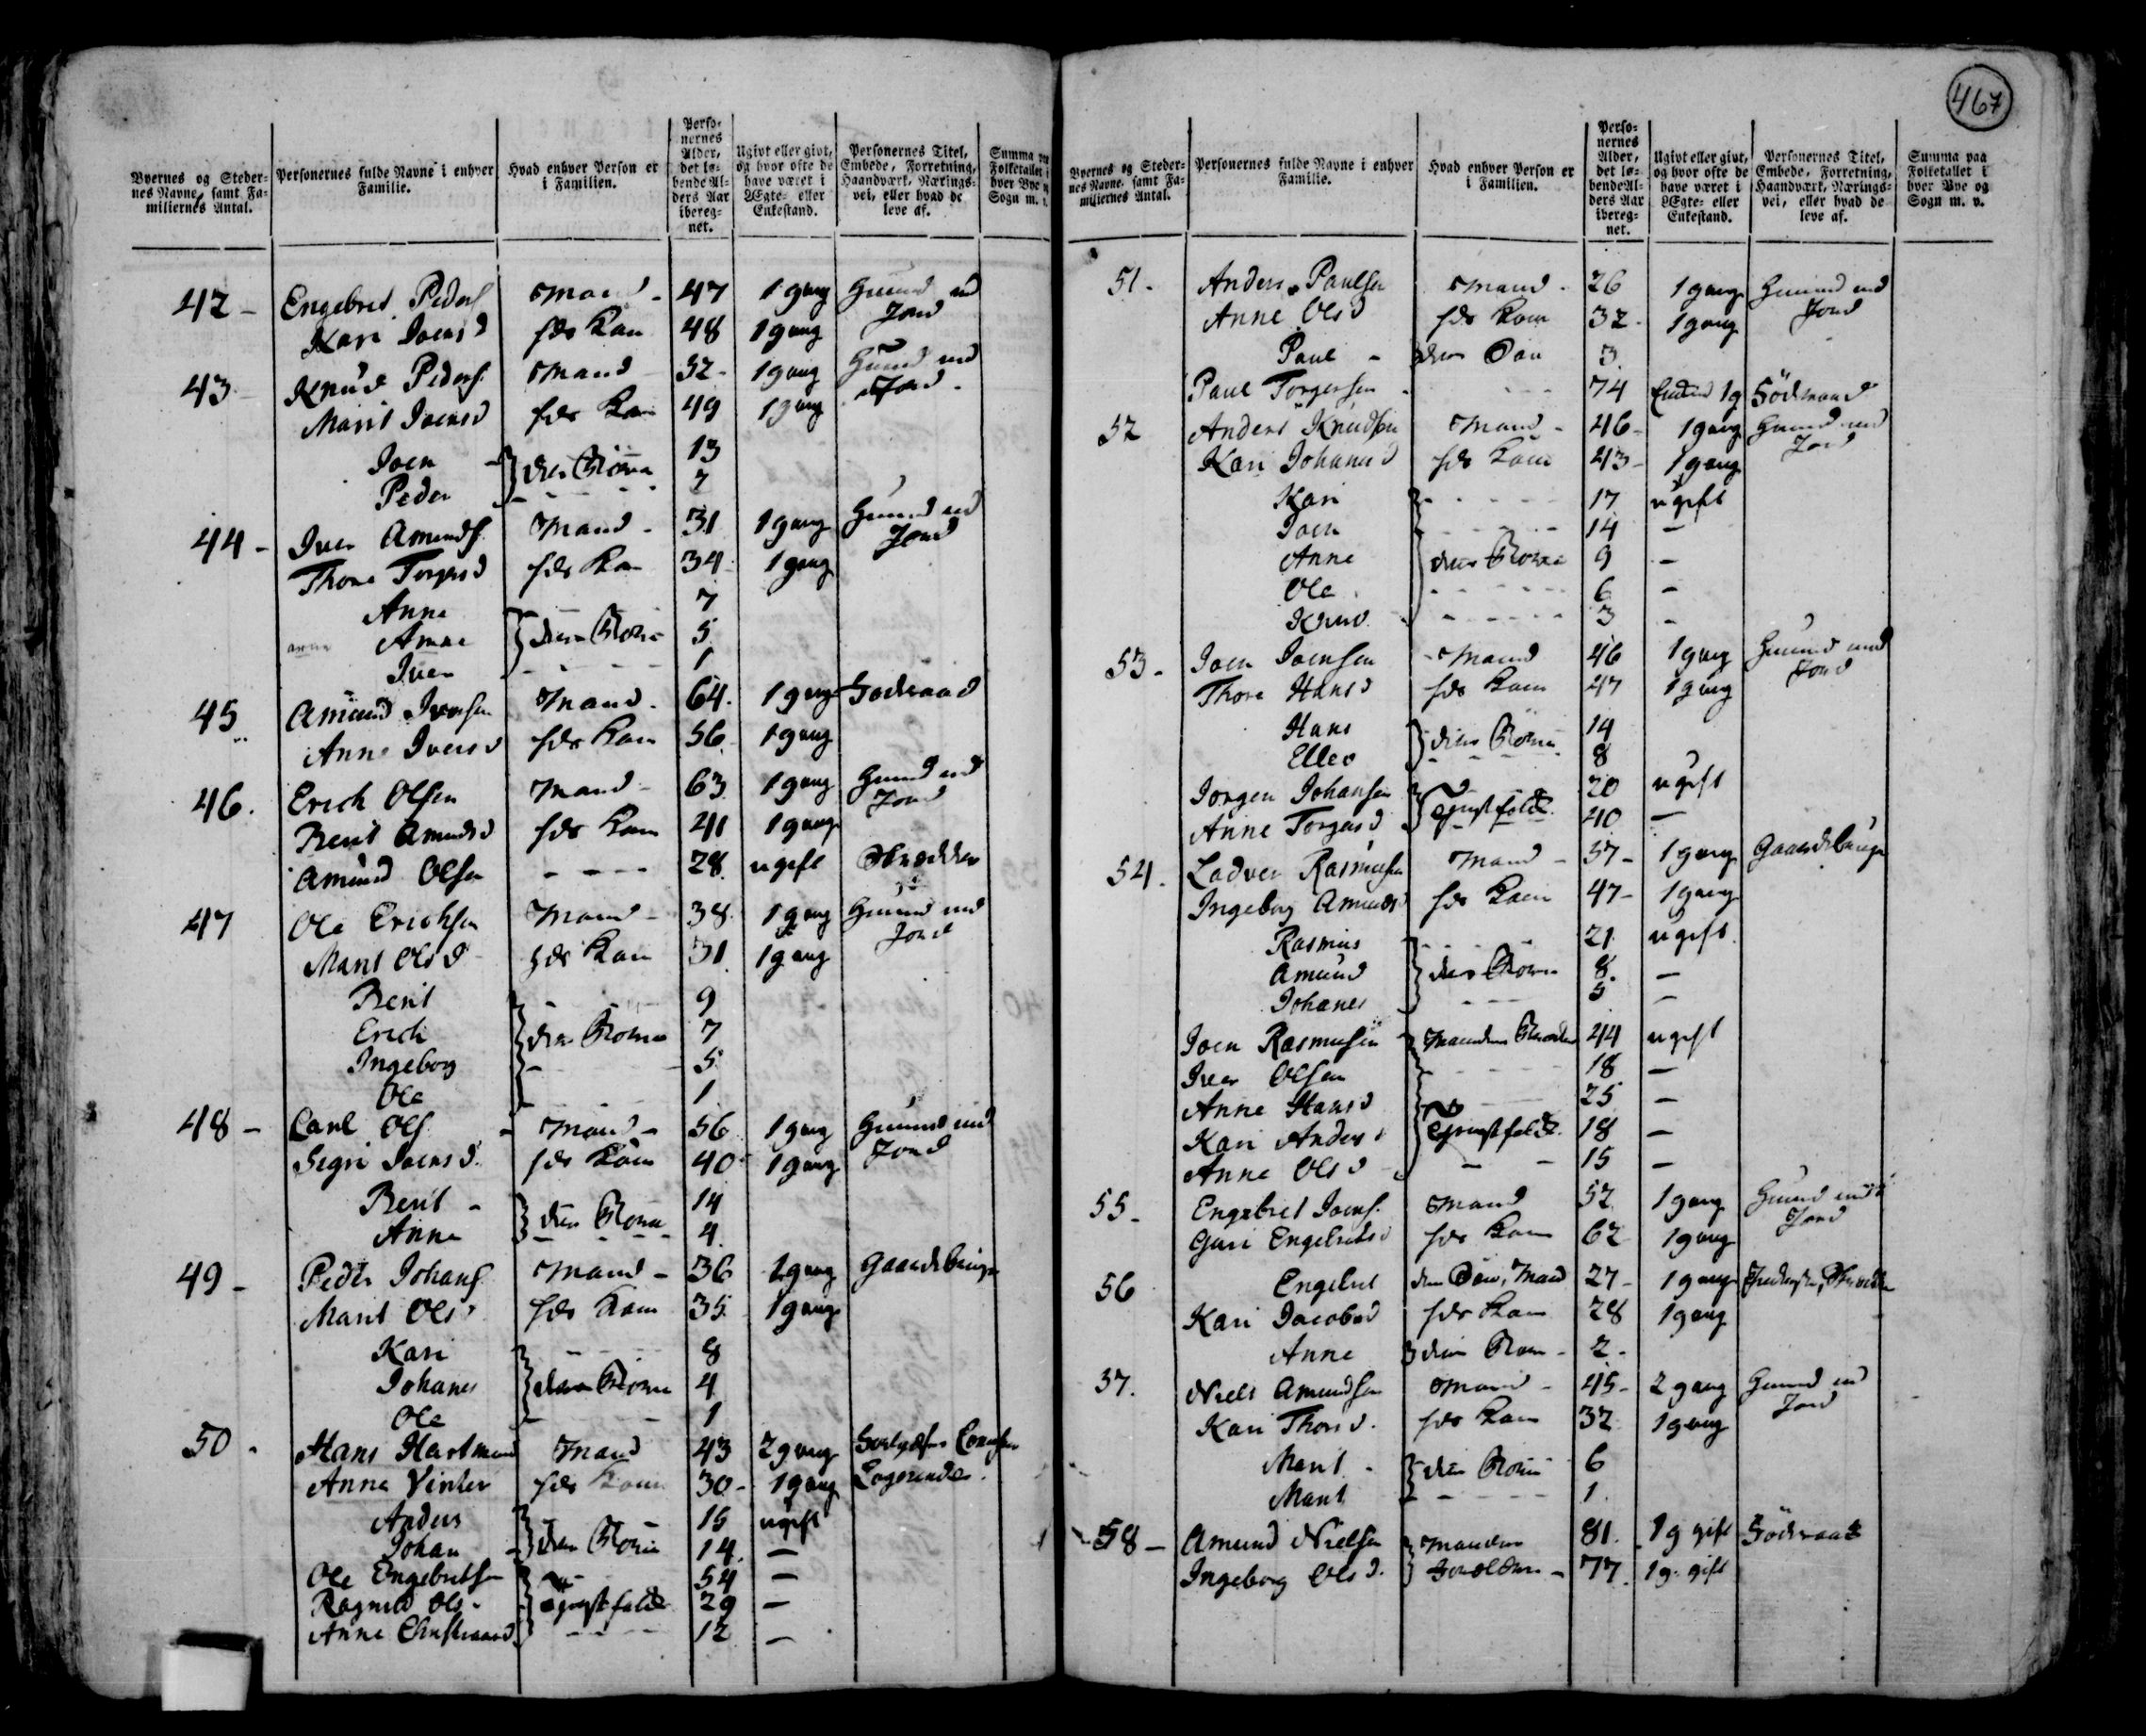 467
Byernes og Steder-
nes Navne, samt Fa-
miliernes Antal.
Personernes fulde Navne i enhver
Familie.
Hvad enhver Person er
i Familien.
Perso-
nernes
Alder,
det lø-
bende Al-
ders Aar
ibereg-
net.
Ugivt eller givt,
og hvor ofte de
have været i
Ægte- eller
Enkestand.
Personernes Titel,
Embede, Forretning,
Haandværk, Nærings-
vei, eller hvad de
leve af.
Summa
Folketallet i
hver Bye
Sogn m.
42 - Engebret Peders. Mand - 47 1 gang Huusmd med
Jord
Kari Joensd hds Kone 48 1 gang
43 Knud Peders. Mand 52 - 1 gang Huusmd med
Jord
Marit Joensd hds Kone 49 1 gang
Joen } deres Børn 13
Peder 7
44 - Iver Amunds. Mand - 31 1 gang Huusmd med
Jord
Thore Torgersd hds Kone 34 1 gang
Anne 7
Arne } deres Børn 5
Iver 1
45 Amund Iversen Mand - 64 1 gang Födsraad
Anne Iversd hds Kone 56 1 gang
46. Erich Olsen Mand - 63 1 gang Huusmd med
Jord
Berit Amundsd hds Kone 41 1 gang
Amund Olsen - - - - 28 ugift Skrædder
47 Ole Erichsen Mand - 38 1 gang Huusmd med
Jord
Marit Olsd hds Kone 31 1 gang
Berit 9
Erich } deres Børn 7
Ingeborg 5
Ole 1
48 - Carl Ols. - Mand - 56 1 gang Huusmd med
Jord
Segri Joensd. hds Kone 40 1 gang
Berit - } deres Børn 14
Anne 4
49 - Peder Johans. Mand - 36 1 gang Gaardebruger
Marit Olsd hds Kone 35 1 gang
Kari 8
Johanes } deres Børn 4
Ole 1
50. Hans Hartmand Mand 43 2 gang
Anne Vinter hds Kone 30 - 1 gang Logerende
Anders 15 ugift
Johan } deres Børn 14 —
Ole Engebretsen 54 —
Ragnild Ols. } Tjenestefolk 29 —
Anne 12 —
Byernes og Steder-
nes Navne, samt Fa-
miliernes Antal.
Personernes fulde Navne i enhver
Familie.
Hvad enhver Person er
i Familien.
Perso-
nernes
Alder,
det lø-
bende Al-
ders Aar
ibereg-
net.
Ugivt eller givt,
og hvor ofte de
have været i
Ægte- eller
Enkestand.
Personernes Titel,
Embede, Forretning,
Haandværk, Nærings-
vei, eller hvad de
leve af.
Summa paa
Folketallet i
hver Bye og
Sogn m. v.
51. Anders Paulsen Mand - 26 1 gang Huusmd med
Jord
Anne Olsd hds Kone 32 - 1 gang
Paul - } deres Søn 3
Paul Torgersen - - - 74 Enkemd 1 g Födsraad
52 Anders Knudsen Mand - 46 - 1 gang Huusmd med
Jord
Kari Johansd hds Kone 43 - 1 gang
Kari 17 ugift
Joen 14 —
Anne } deres Børn 9 —
Ole 6 —
Knud 3 —
53 - Joen Joensen Mand 46 1 gang Huusmd med
Jord
Thore Hansd hds Kone 47 1 gang
Hans } deres Børn 14
Ellev 8
Jorgen Johansen } Tjenestefolk 20 ugift
Anne Torgersd 40 —
54. Ladver Rasmusen Mand - 57 - 1 gang Gaardebruger
Ingeborg Amundsd hds Kone 47 - 1 gang
Rasmus 21 ugift
Amund } deres Børn 8 —
Johanes 5 —
Joen Rasmusen Mandens Broder 44 ugift
Iver Olsen 18 —
Anne Hansd 25 —
Kari Andersd } Tjenestefolk 18 —
Anne Olsd 15 —
55 - Engebret Joens. Mand 52 1 gang Huusmd med
Jord
Guri Engebretsd hds Kone 62 1 gang
56 Engebret deres Søn, Mand 27 - 1 gang
Kari Jacobsd hds Kone 28 1 gang
Anne } deres Barn - 2 -
57. Niels Amundsen Mand - 45 - 2 gang Huusmd med
Jord
Kari Thorsd. hds Kone 32 1 gang
Marit - } deres Børn 6
Marit 1
58 - Amund Nielsen } Mandens 81. 1 g gift Födsraad
Ingeborg Olsd. Forældre - 77. 1 g. gift